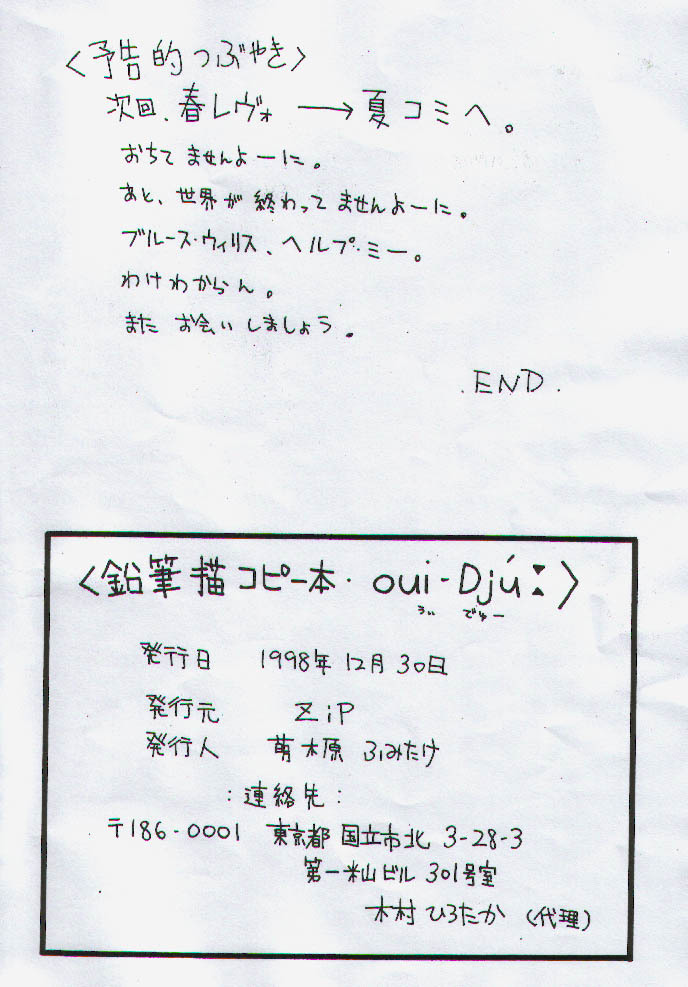 〈予告的つぶやき〉
次回、春レヴォ ⟶ 夏コミへ。
おちてませんよーに。
あと、世界が終わってませんよーに。
ブルース・ウィリス、ヘルプ・ミー。
わけわからん。
またお会いしましょう。
.END.
〈鉛筆描コピー本・oui-Djú:〉
うぃ でゅー
発行日 1998年12月30日
発行元 ZiP
発行人 萌木原ふみたけ
:連絡先:
〒186-0001 東京都国立市北3-28-3
第一米山ビル301号室
木村ひろたか(代理)